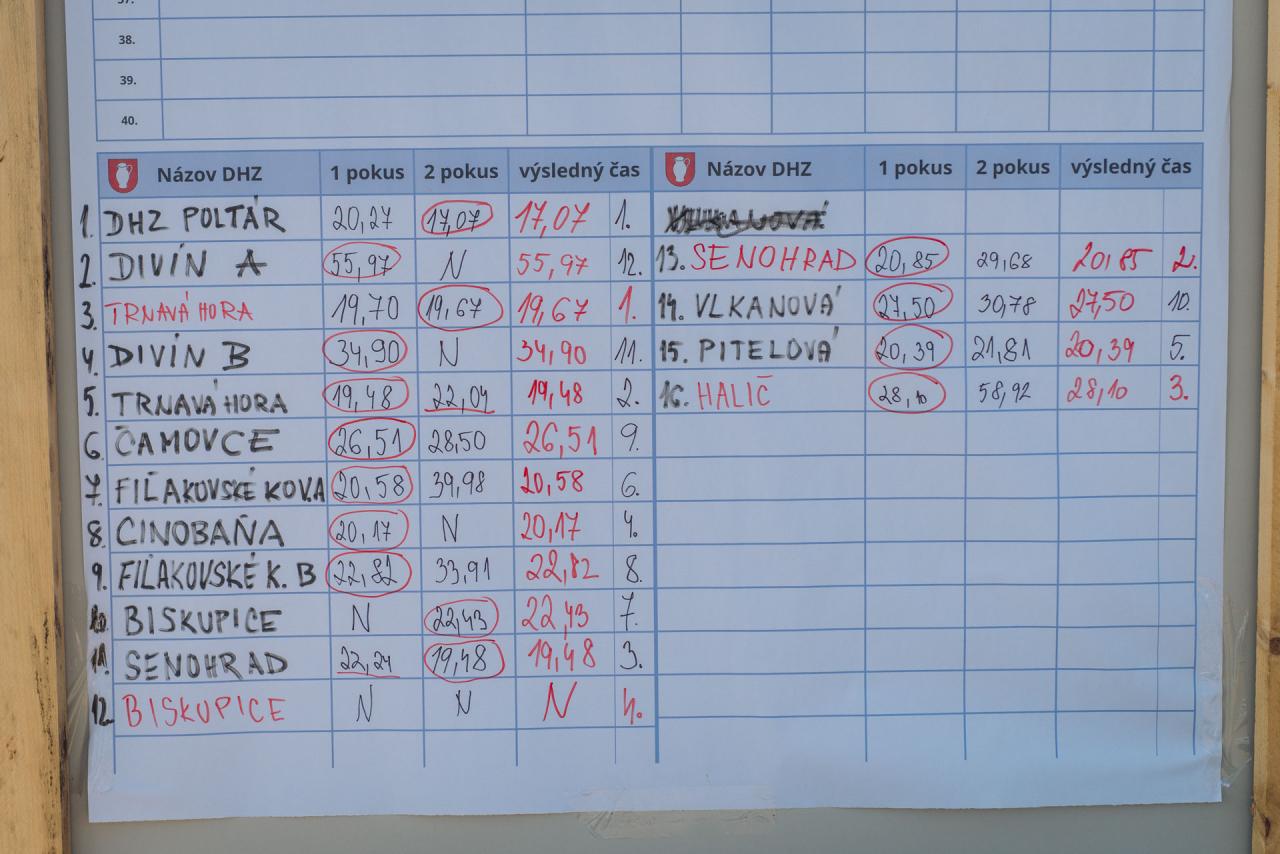 38.
39.
40.
Názov DHZ 1 pokus 2 pokus výsledný čas
1. DHZ POLTÁR 20,27 17,07 17,07 1.
2. DIVÍN A 55,97 N 55,97 12.
3. TRNAVÁ HORA 19,70 19,67 19,67 1.
4. DIVÍN B 34,90 N 34,90 11.
5. TRNAVÁ HORA 19,48 22,04 19,48 2.
6. ČAMOVCE 26,51 28,50 26,51 9.
7. FIĽAKOVSKÉ KOV.A 20,58 39,98 20,58 6.
8. CINOBAŇA 20,17 N 20,17 4.
9. FIĽAKOVSKÉ K. B 22,82 33,91 22,82 8.
10. BISKUPICE N 22,43 22,43 7.
11. SENOHRAD 22,24 19,48 19,48 3.
12. BISKUPICE N N N 4.
Názov DHZ 1 pokus 2 pokus výsledný čas
13. SENOHRAD 20,85 29,68 20,85 2.
14. VLKANOVÁ 27,50 30,78 27,50 10.
15. PITELOVÁ 20,39 21,81 20,39 5.
16. HALIČ 28,10 58,92 28,10 3.